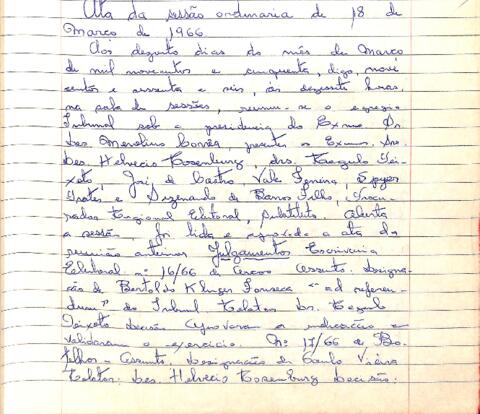 Ata da sessão ordinaria de 18 de
Março de 1966
Aos dezoito dias do mês de Março
de mil novecentos e cinquenta, digo, nove
centos e sessenta e seis, ás dezesseis horas,
na sala de sessões, reuniu-se o egregio
Tribunal sob a presidencia do Exmo Sr.
Des. Merolino Corrêa, presentes os Exmos. Srs.
Des. Helvecio Rosenburg, drs. Tei-
xeira, José de Castro, Vale Ferreira, Epyer
Protes e Sizenando de Barros Filho, Procu-
rador Regional Eleitoral, substituto. Aberta
a sessão, foi lida e aprovada a ata da
reunião anterior. Julgamentos Escrivania
Eleitoral nº 16/66 de Assunto: Designa-
ção de Bertoldo Fonseca "ad referen-
dum" do Tribunal Relator: Dr.
Teixeira Decisão: Aprovaram a indicação e
validaram o exercicio. Nº 17/66 de Bo-
telhos - Assunto: Designação de Paulo Vieira
Relator: Des. Helvecio Rosenburg Decisão: